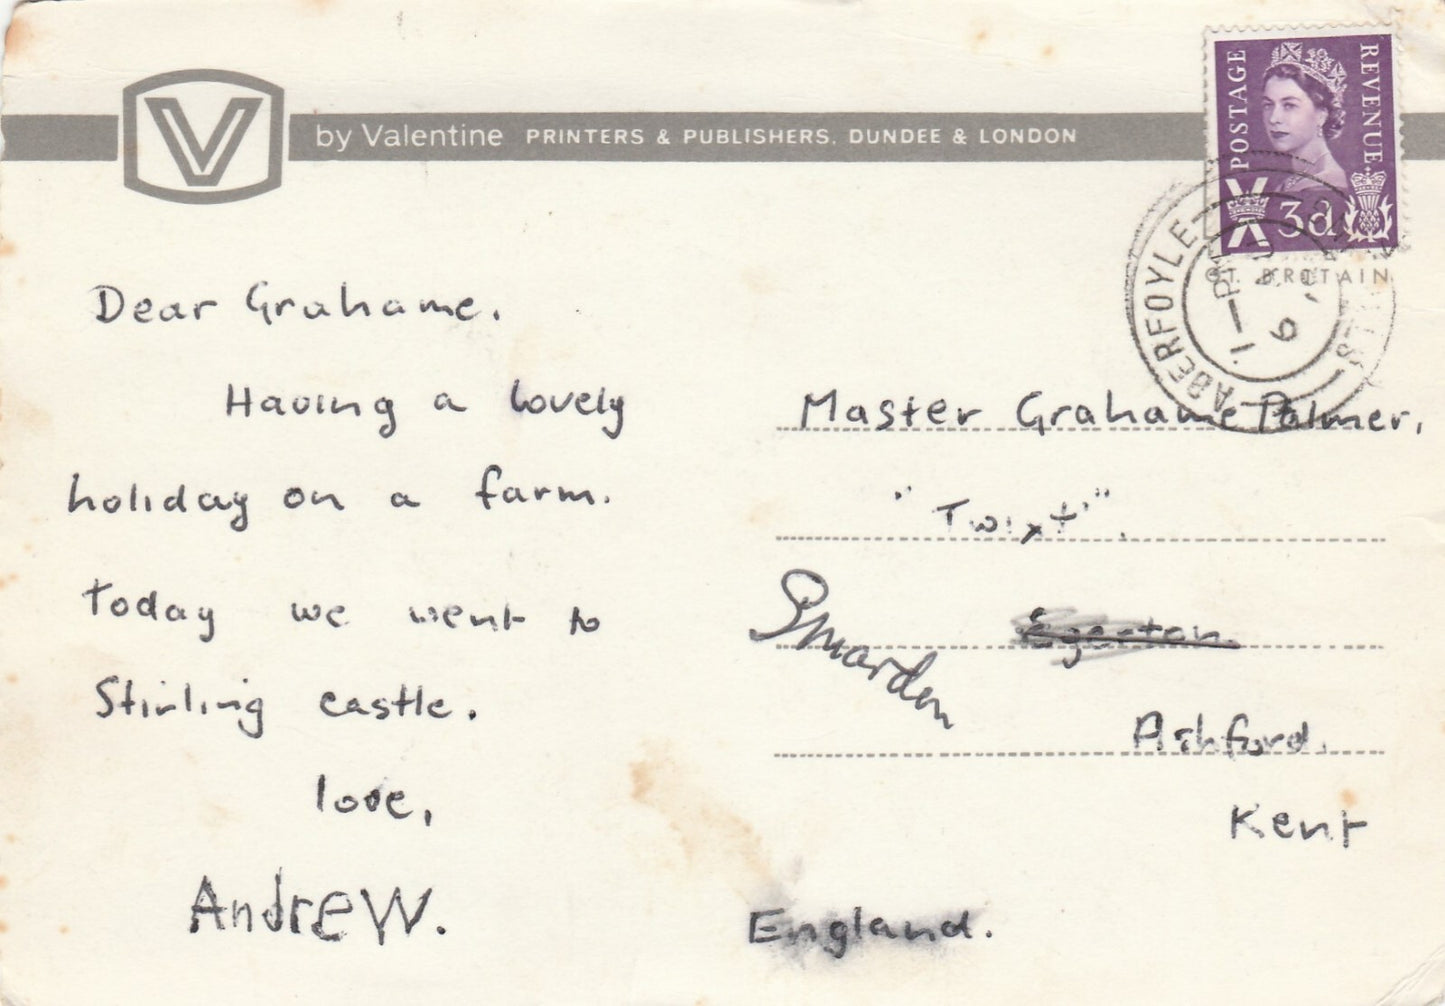 V
by Valentine PRINTERS & PUBLISHERS. DUNDEE & LONDON
POSTAGE
REVENUE
3d
GT. BRITAIN
ABERFOYLE
PM
Dear Grahame.
Having a lovely
holiday on a farm.
Today we went to
Stirling castle.
love,
Andrew.
Master Grahame Palmer,
"Twixt".
Egerton.
Smarden
Ashford.
Kent
England.